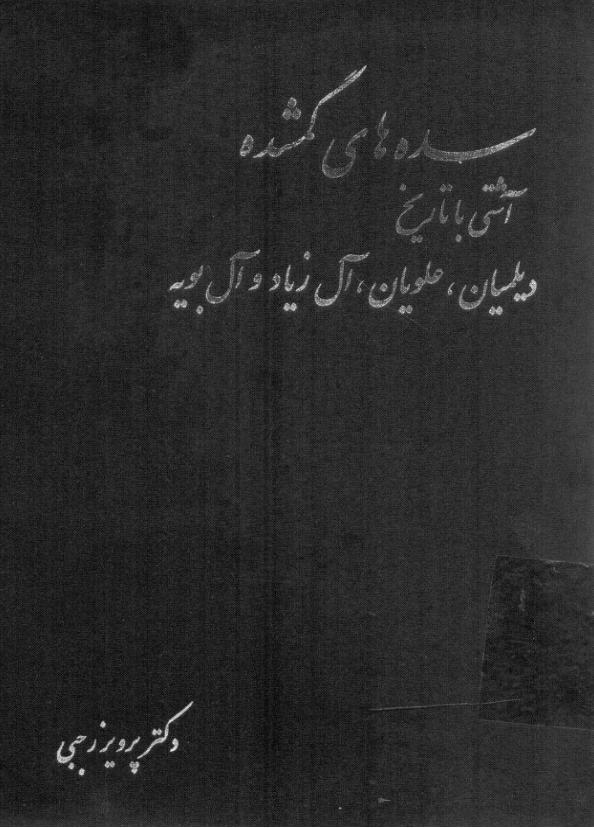 سده های گمشده
آشتی با تاریخ
دیلمیان، علویان، آل زیاد و آل بویه
دکتر پرویز رجبی